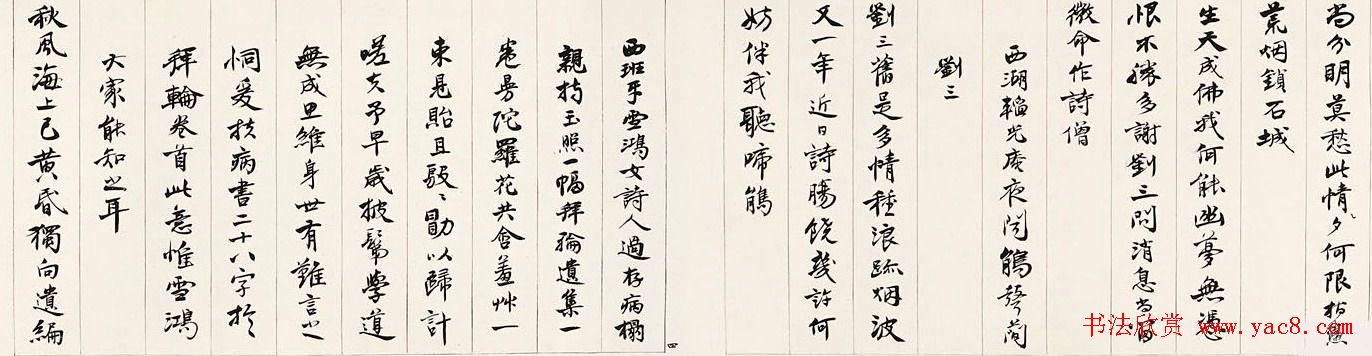 尚分明莫愁此情夕何限指點
荒烟鎖石城
生天成佛我何能幽夢無憑
恨不勝多謝劉三問消息尚留
微命作詩僧
西湖韜光庵夜闻鵑聲簡
劉三
劉三舊是多情種浪跡烟波
又一年近日詩腸饒幾許何
妨伴我聽啼鵑
四
西班牙雪鴻女詩人過存病榻
親持玉照一幅拜輪遺集一
卷曼陀羅花共含羞艸一
束見貽且殷〻勖以歸計
嗟夫予早歲披鬀學道
無成思維身世有難言之
恫爰扶病書二十八字於
拜輪卷首此意惟雪鴻
大家能知之耳
秋風海上已黃昏獨向遺編
书法欣赏 www.yac8.com